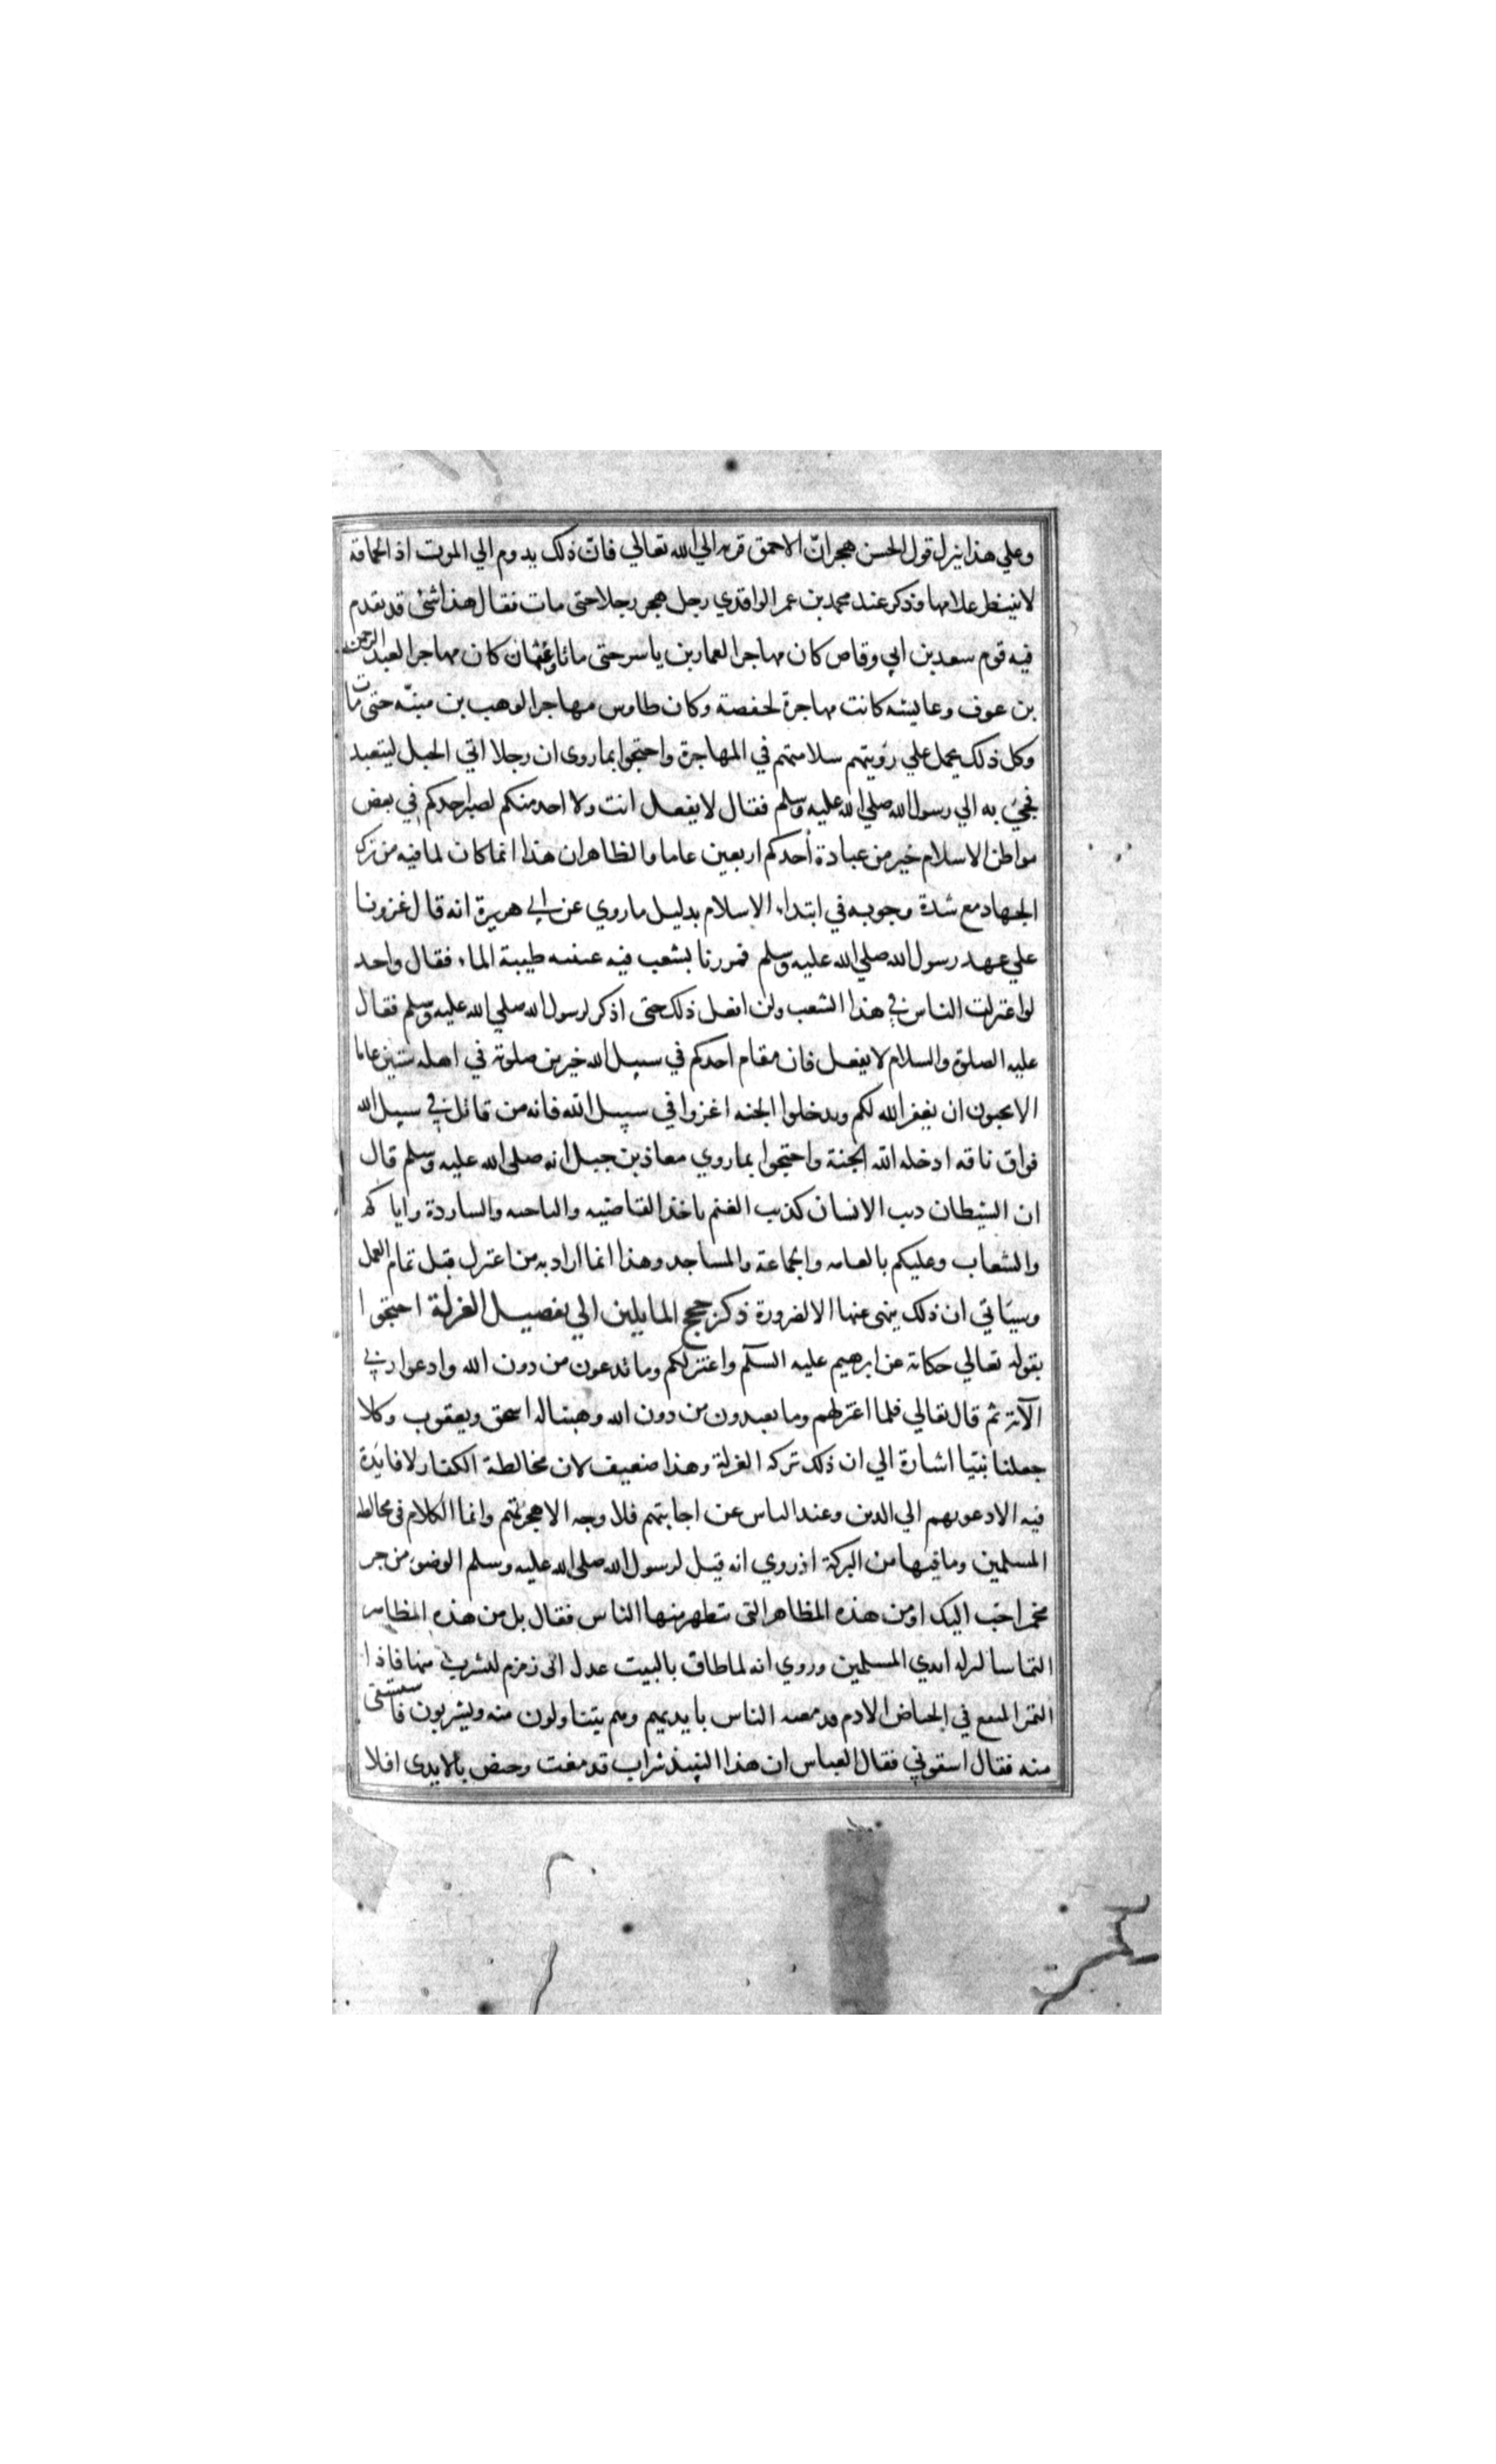 وعلي هذا ينزل قول الحسن هجران الاحمق قربة الي الله تعالي فان ذلك يدوم الي الموت اذ الحماقة
لا ينتظر علامها وذكر عند محمد بن عمر الواقدي رجل هجر رجلا حتى مات فقال هذا شئ قد تقدم
فيه قوم سعد بن ابي وقاص كان مهاجرا لعمار بن ياسر حتى ماتا وعثمان كان مهاجرا لعبد الرحمن
بن عوف وعايشه كانت مهاجرة لحفصة وكان طاوس مهاجرا لوهب بن منبّه حتى مات
وكل ذلك يحمل علي رؤيتهم سلامتهم في المهاجرة واحتجوا بما روى ان رجلا اتي الجبل ليتعبد
فجئ به الي رسول الله صلي الله عليه وسلم فقال لا يفعل انت ولا احد منكم لصبر احدكم في بعض
مواطن الاسلام خير من عبادة أحدكم اربعين عاما والظاهر ان هذا انما كان لما فيه من ترك
الجهاد مع شدة وجوبه في ابتداء الاسلام بدليل ما روي عن ابي هريرة انه قال غزونا
علي عهد رسول الله صلي الله عليه وسلم فمررنا بشعب فيه عيينه طيبة الماء فقال واحد
لو اعتزلت الناس في هذا الشعب ولن افعل ذلك حتى اذكر لرسول الله صلي الله عليه وسلم فقال
عليه الصلوة والسلام لا يفعل فان مقام احدكم في سبيل الله خير من صلوته في اهله ستين عاما
الا تحبون ان يغفر الله لكم وبدخلوا الجنه اغزوا في سبيل الله فانه من قاتل في سبيل الله
فواق ناقه ادخله الله الجنة واحتجوا بما روي معاذ بن جبل انه صلى الله عليه وسلم قال
ان الشيطان ديب الانسان كذيب الغنم ياخذ القاصيه والناحيه والساردة واياكم
والشعاب وعليكم بالعامه والجماعة والمساجد وهذا انما اراد به من اعتزل قبل تمام العمل
وسياتي ان ذلك ينهى عنها الا لضرورة ذكر حجج المايلين الي تفصيل العزلة احتجوا
بقوله تعالي حكاية عن ابرهيم عليه السلم واعتزلكم وما تدعون من دون الله وادعوا ربي
الآية ثم قال تعالي فلما اعتزلهم وما يعبدون من دون الله وهبنا له اسحق ويعقوب وكلا
جعلنا نبيا اشارة الي ان ذلك تركه العزلة وهذا ضعيف لان مخالطة الكفار لا فايدة
فيه الا دعوتهم الي الدين وعند الياس عن اجابتهم فلا وجه الا هجرتهم وانما الكلام في مخالطه
المسلمين وما فيها من البركة اذ روي انه قيل لرسول الله صلى الله عليه وسلم الوضوء من جر
مخمر احبّ اليك او من هذه المظاهر التي يتطهر منها الناس فقال بل من هذه المظاهر
التماسا لبركه ايدي المسلمين وروي انه لما طاف بالبيت عدل الى زمزم ليشرب منها فاذا
التمر المنقع في الحياض الادم قد مغثه الناس بايديهم وهم يتناولون منه ويشربون فاستسقى
منه فقال اسقوني فقال العباس ان هذا النبيذ شراب قد مغث وحيض بالايدى افلا